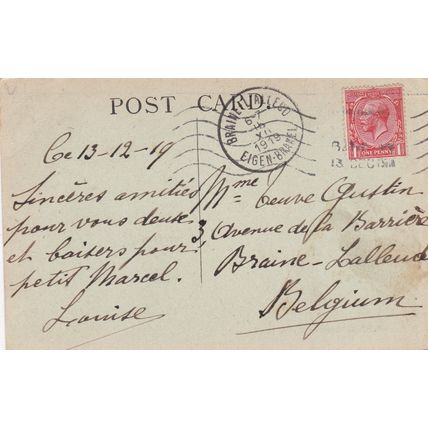 POST CARD.
BRAINE L'ALLEUD
6-7
15
XII
1919
EIGEN-BRAKEL
ONE PENNY
13 DEC
Ce 13-12-19
Sincères amitiés
pour vous deux
et baisers pour
petit Marcel.
Louise
Mme veuve Gustin
3, Avenue de la Barrière
Braine-Lalleud
Belgium